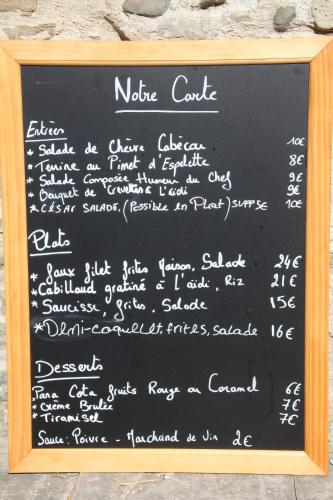 Notre Carte
Entrées
* Salade de Chèvre Cabécou 10€
* Terrine au Piment d'Espelette 8€
* Salade Composée Humeur du Chef 9€
* Bouquet de Crevettes à L'aïoli 9€
* CÉSAR SALADE, (Possible en Plat) SUPP 5€ 10€
Plats
* faux filet frites Maison, Salade 24€
* Cabillaud gratiné à L'aïoli, Riz 21€
* Saucisse, frites, Salade 15€
* Demi-coquelet, frites, salade 16€
Desserts
Pana Cota fruits Rouge ou Caramel 6€
* Crème Brulée 7€
* Tiramisu 7€
Sauce: Poivre - Marchand de Vin 2€